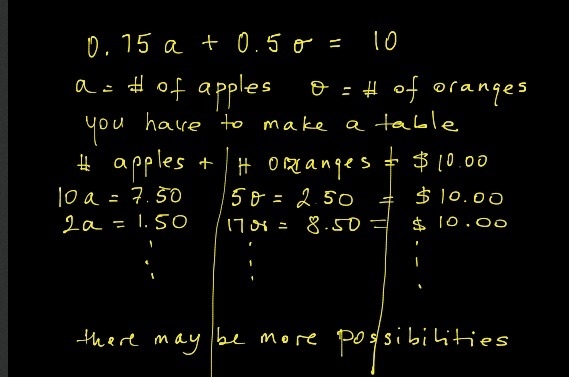 0.75 a + 0.5 o = 10
a = # of apples o = # of oranges
you have to make a table
# apples + # oranges = $10.00
10a = 7.50 5o = 2.50 = $10.00
2a = 1.50 17o = 8.50 = $10.00
there may be more possibilities